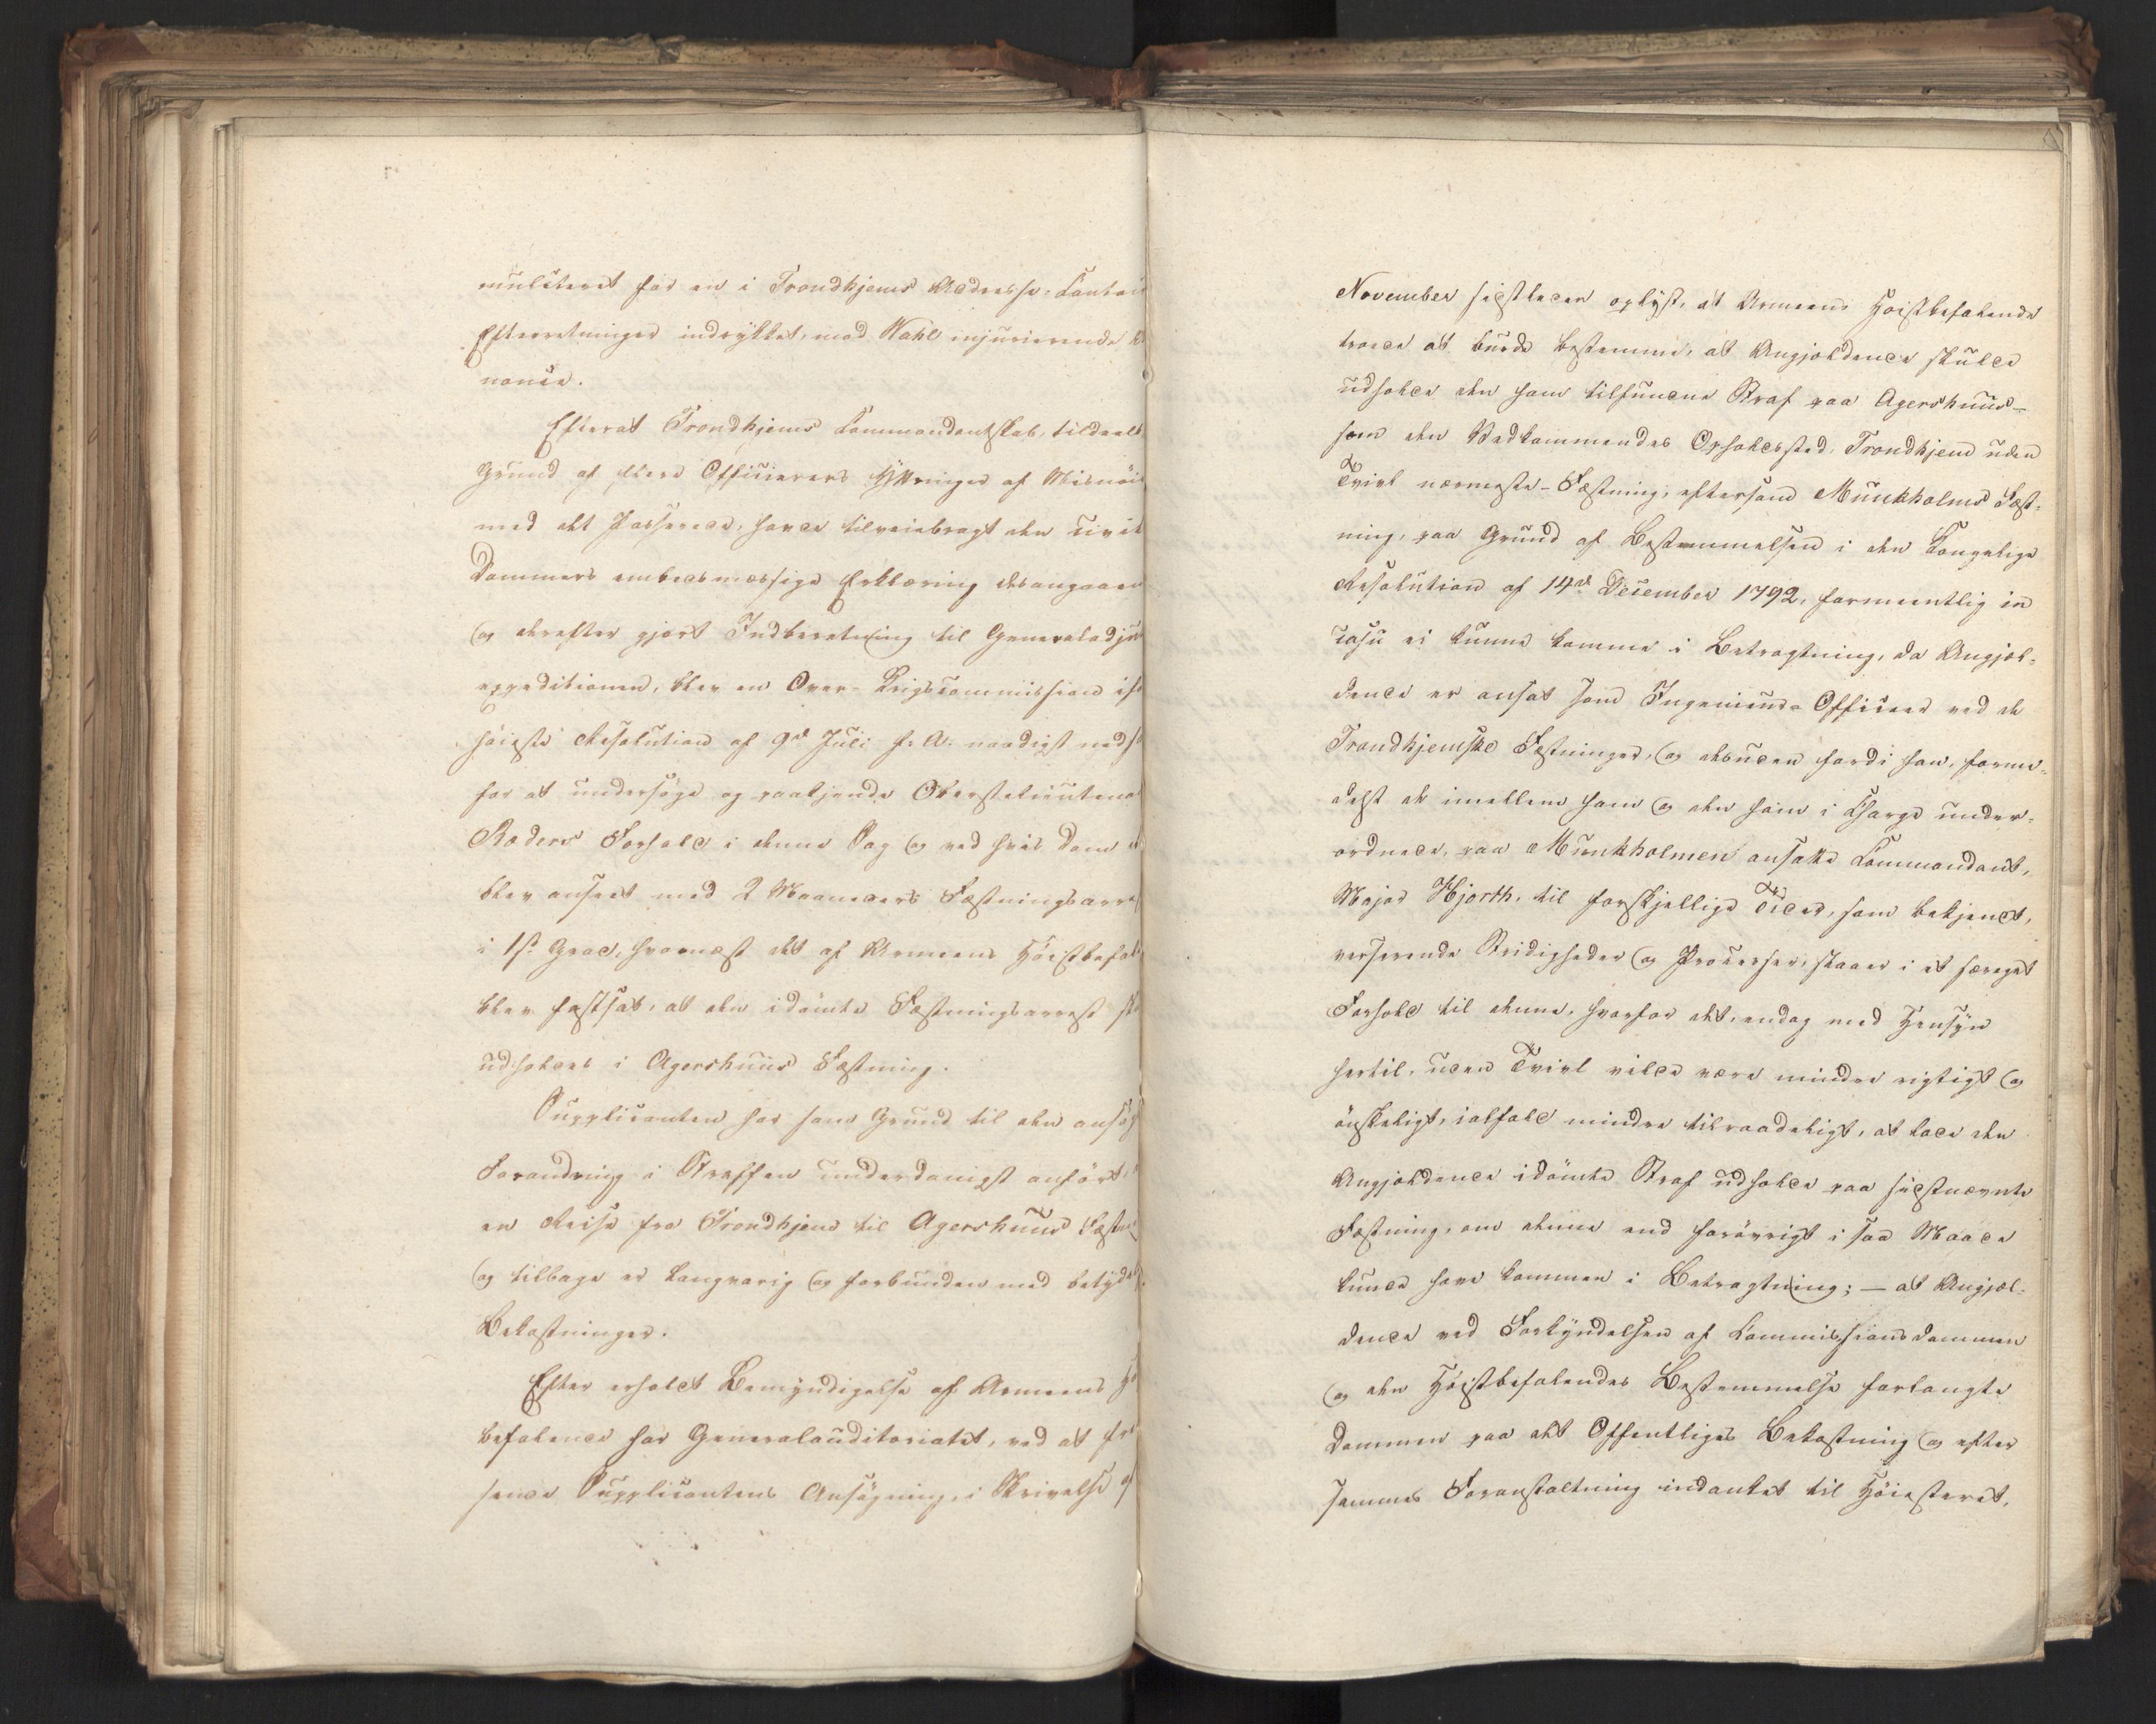 mulcteret for en i Trondhjems Adresse-Contoir
Efterretninger indrykket, mod Wahl injurierende A
nonce.
Efterat Trondhjems Commandantskab, tildeels
Grund af flere Officierers Yttringer af Misnøie
med det Passerede, havde tilveiebragt den civile
Dommers embedsmæssige Erklæring desangaaen
og derefter gjort Indberetning til Generaladju
expeditionen, blev en Over-Krigscommission if
høieste Resolution af 9de Juli f: A: naadigst neds
for at undersøge og paakjende Oberstlieutena
Ræders Forhold i denne Sag og ved hvis Dom
blev anseet med 2 Maaneders Fæstningsarre
i 1ste Grad, hvornæst det af Armeens Høistbefal
blev fastsat, at den idømte Fæstningsarrest sk
udholdes i Agershuus Fæstning.
Supplicanten har som Grund til den ansøg
Forandring i Straffen underdanigst anført,
en Reise fra Trondhjem til Agershuus Fæstni
og tilbage er langvarig og forbunden med betyde
Bekostninger.
Efter erholdt Bemyndigelse af Armeens H
befalende har Generalauditoriatet, ved at fre
sende Supplicantens Ansøgning, i Skrivelse
November sidstleden oplyst, at Armeens Høistbefalende
troede at burde bestemme, at Angjeldende skulde
udholde den ham tilfundne Straf paa Agershuus-
som den Vedkommendes Opholdssted, Trondhjem uden
Tvivl nærmeste-Fæstning, eftersom Munkholms Fæst-
ning, paa Grund af Bestemmelsen i den Kongelige
Resolution af 14de December 1792, formeentlig in
casu ei kunne komme i Betragtning, da Angjel-
dende er ansat som Ingenieur-Officeer ved de
Trondhjemske Fæstninger, og desuden fordi han, forme-
delst de imellem ham og den ham i Charge under-
ordnede, paa Munkholmen ansatte Commandant,
Major Hjorth, til forskjellige Tider, som bekjendt,
verserende Stridigheder og Processer, staaer i et særeget
Forhold til denne, hvorfor det, endog med Hensyn
hertil, uden Tvivl vilde være mindre rigtigt og
ønskeligt, ialfald mindre tilraadeligt, at lade den
Angjeldende idømte Straf udholde paa sidstnævnte
Fæstning, om denne end forøvrigt i saa Maade
kunde have kommen i Betragtning; — at Angjel-
dende ved Forkyndelsen af Commissionsdommen
og den Høistbefalendes Bestemmelse forlangte
Dommen paa det Offentliges Bekostning og efter
sammes Foranstaltning indanket til Høiesteret,